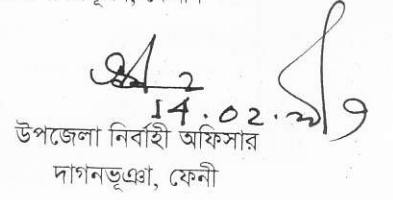 14.02.
উপজেলা নির্বাহী অফিসার
দাগনভূঞা, ফেনী